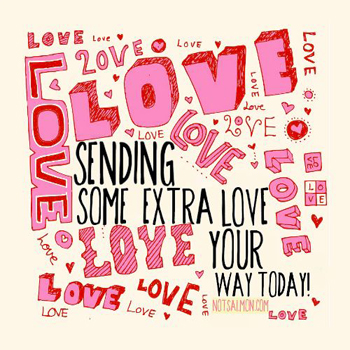 LOVE love LOVE LOVE LOVE
LOVE
LOVE
LOVE
love
Love
LOVE
LOVE
LOVE
SENDING
SOME EXTRA LOVE
YOUR
WAY TODAY!
NOTSALMON.COM
LOVE
LOVE
LOVE
love
LOVE
LOVE
LOVE
LOVE
LOVE
LOVE
LOVE